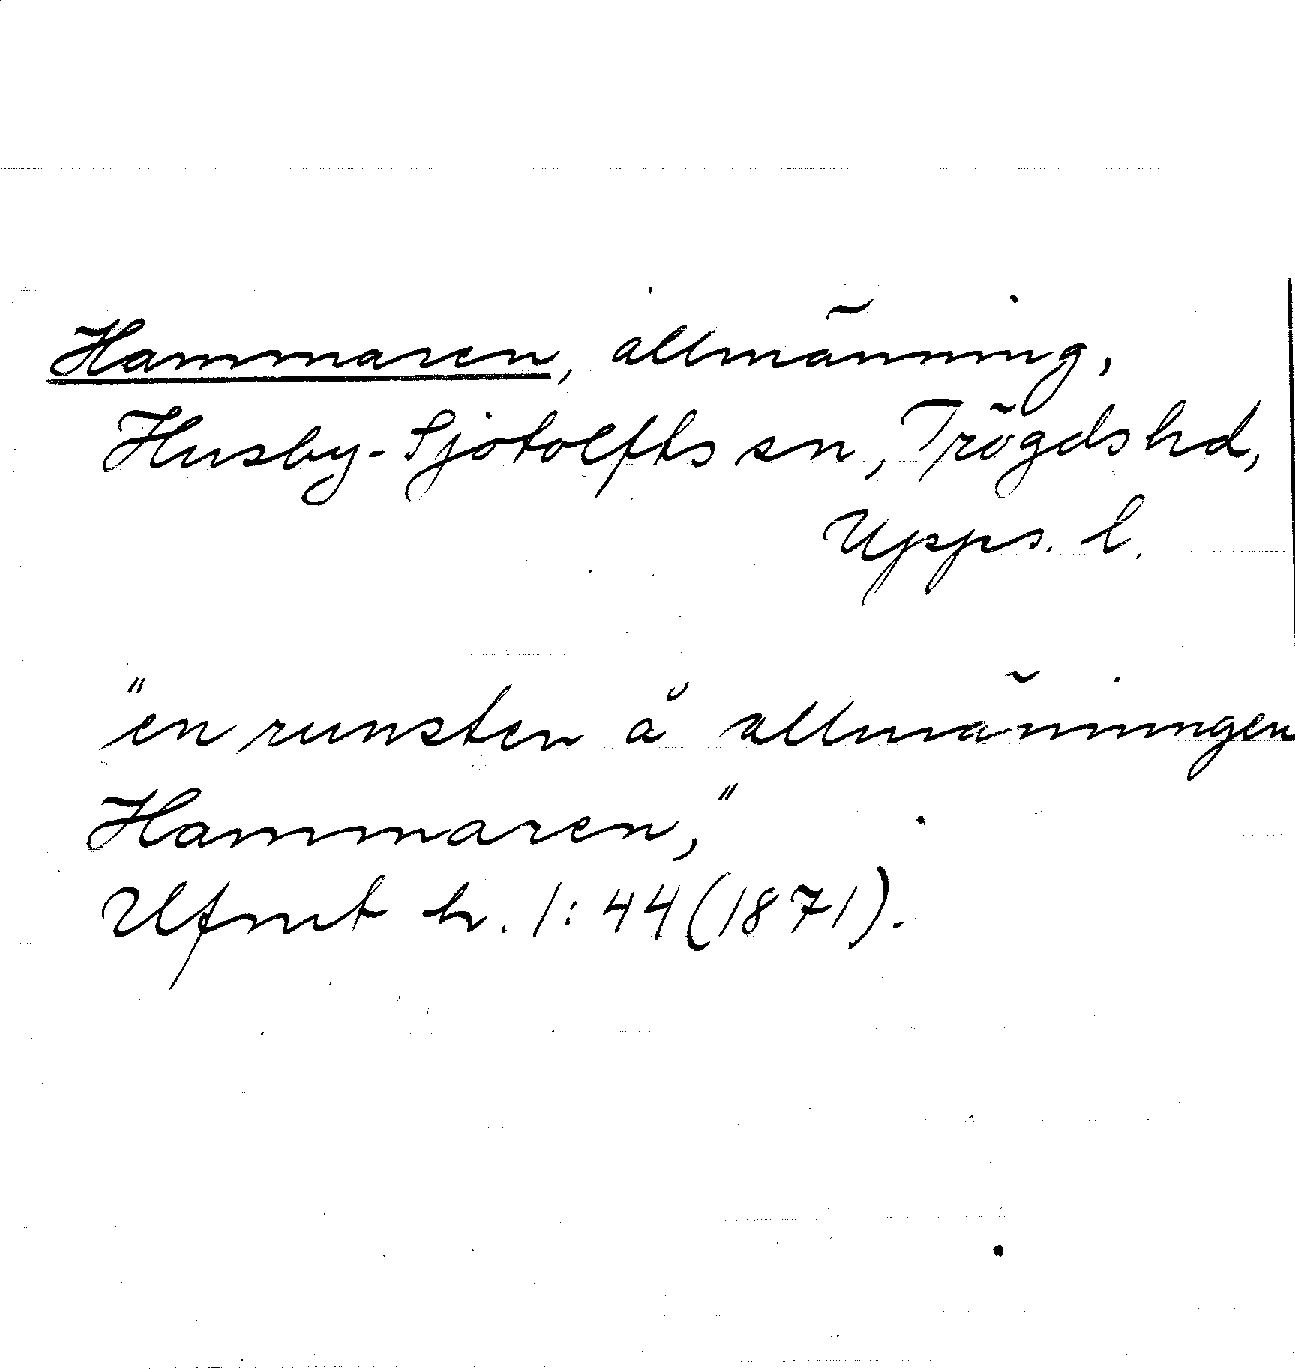 Hammaren, allmänning,
Husby-Sjötolfts sn, Trögds hd,
Upps. l.
"en runsten å allmänningen
Hammaren,"
Ufmt h. 1:44 (1871).